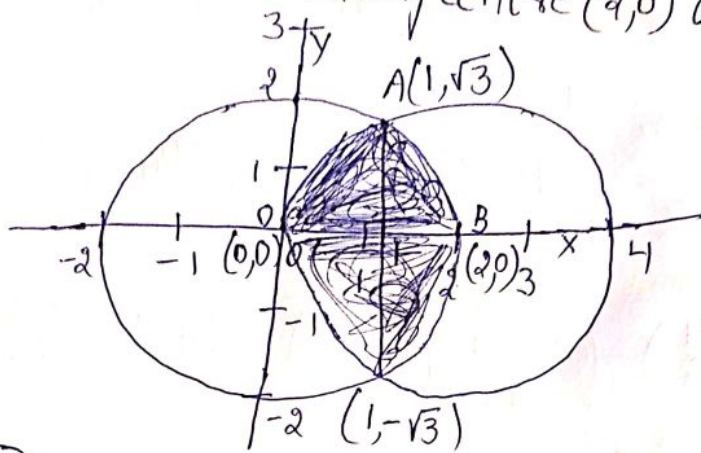 (2,0)
3 y
2 A(1,√3)
1
O B
-2 -1 (0,0) 1 2 (2,0) 3 x 4
-1
-2 (1,-√3)